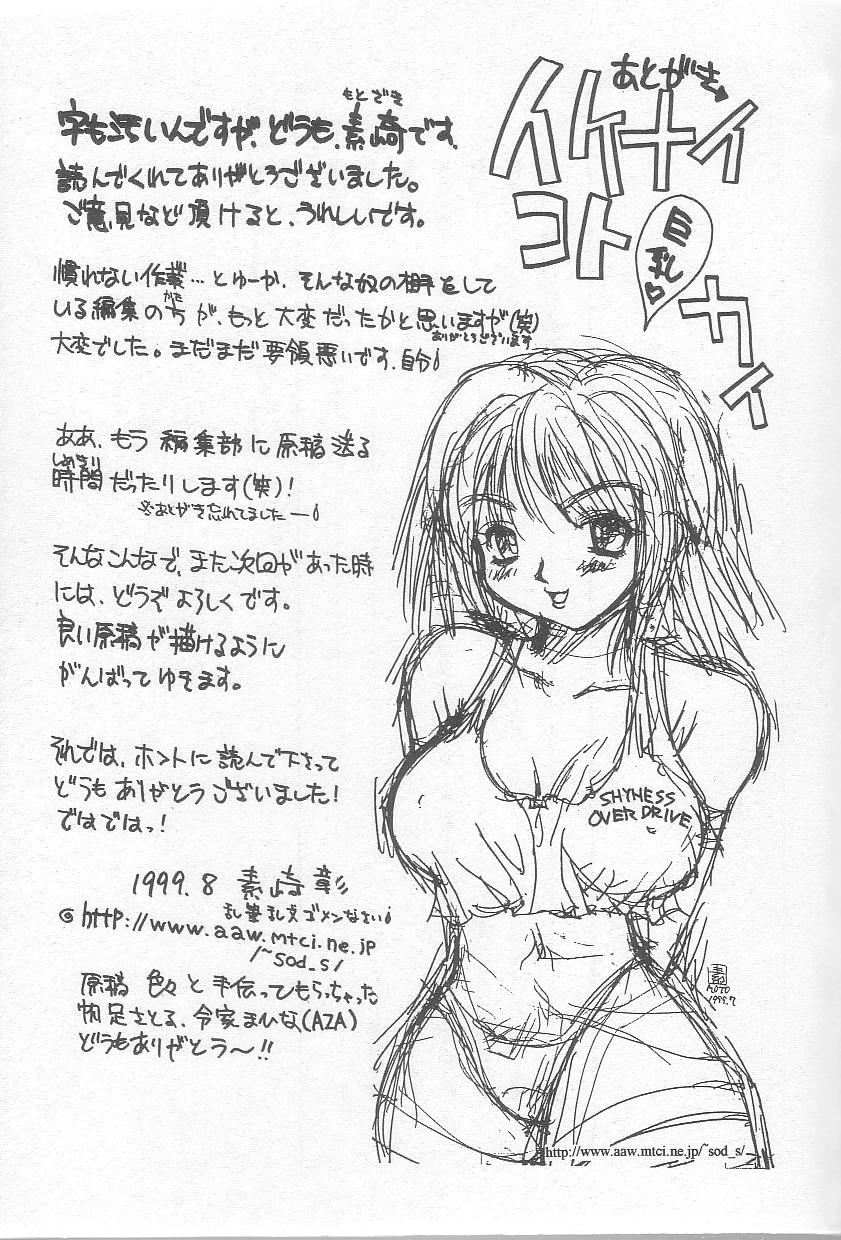 あとがき
イケナイ
コト
巨乳
カイ
もとざき
字も汚いんですが、どうも、素崎です。
読んでくれてありがとうございました。
ご意見など頂けると、うれしいです。
慣れない作業…とゆーか、そんな奴の相手をして
いる編集の方が、もっと大変だったかと思いますが(笑)
かた
ありがとうございます
大変でした。まだまだ要領悪いです、自分
ああ、もう編集部に原稿送る
しめきり
時間だったりします(笑)!
※あとがき忘れてましたー
そんなこんなで、また次回があった時
には、どうぞよろしくです。
良い原稿が描けるように
がんばってゆきます。
それでは、ホントに読んで下さって
どうもありがとうございました!
ではではっ!
1999.8 素崎 彰
乱筆乱文ゴメンなさい
◎http://www.aaw.mtci.ne.jp
/~sod_s/
原稿 色々と手伝ってもらっちゃった
物足さとる、令家まひな(AZA)
どうもありがとう〜!!
SHYNESS
OVER DRIVE
素
MOTO
1999.7
http://www.aaw.mtci.ne.jp/~sod_s/